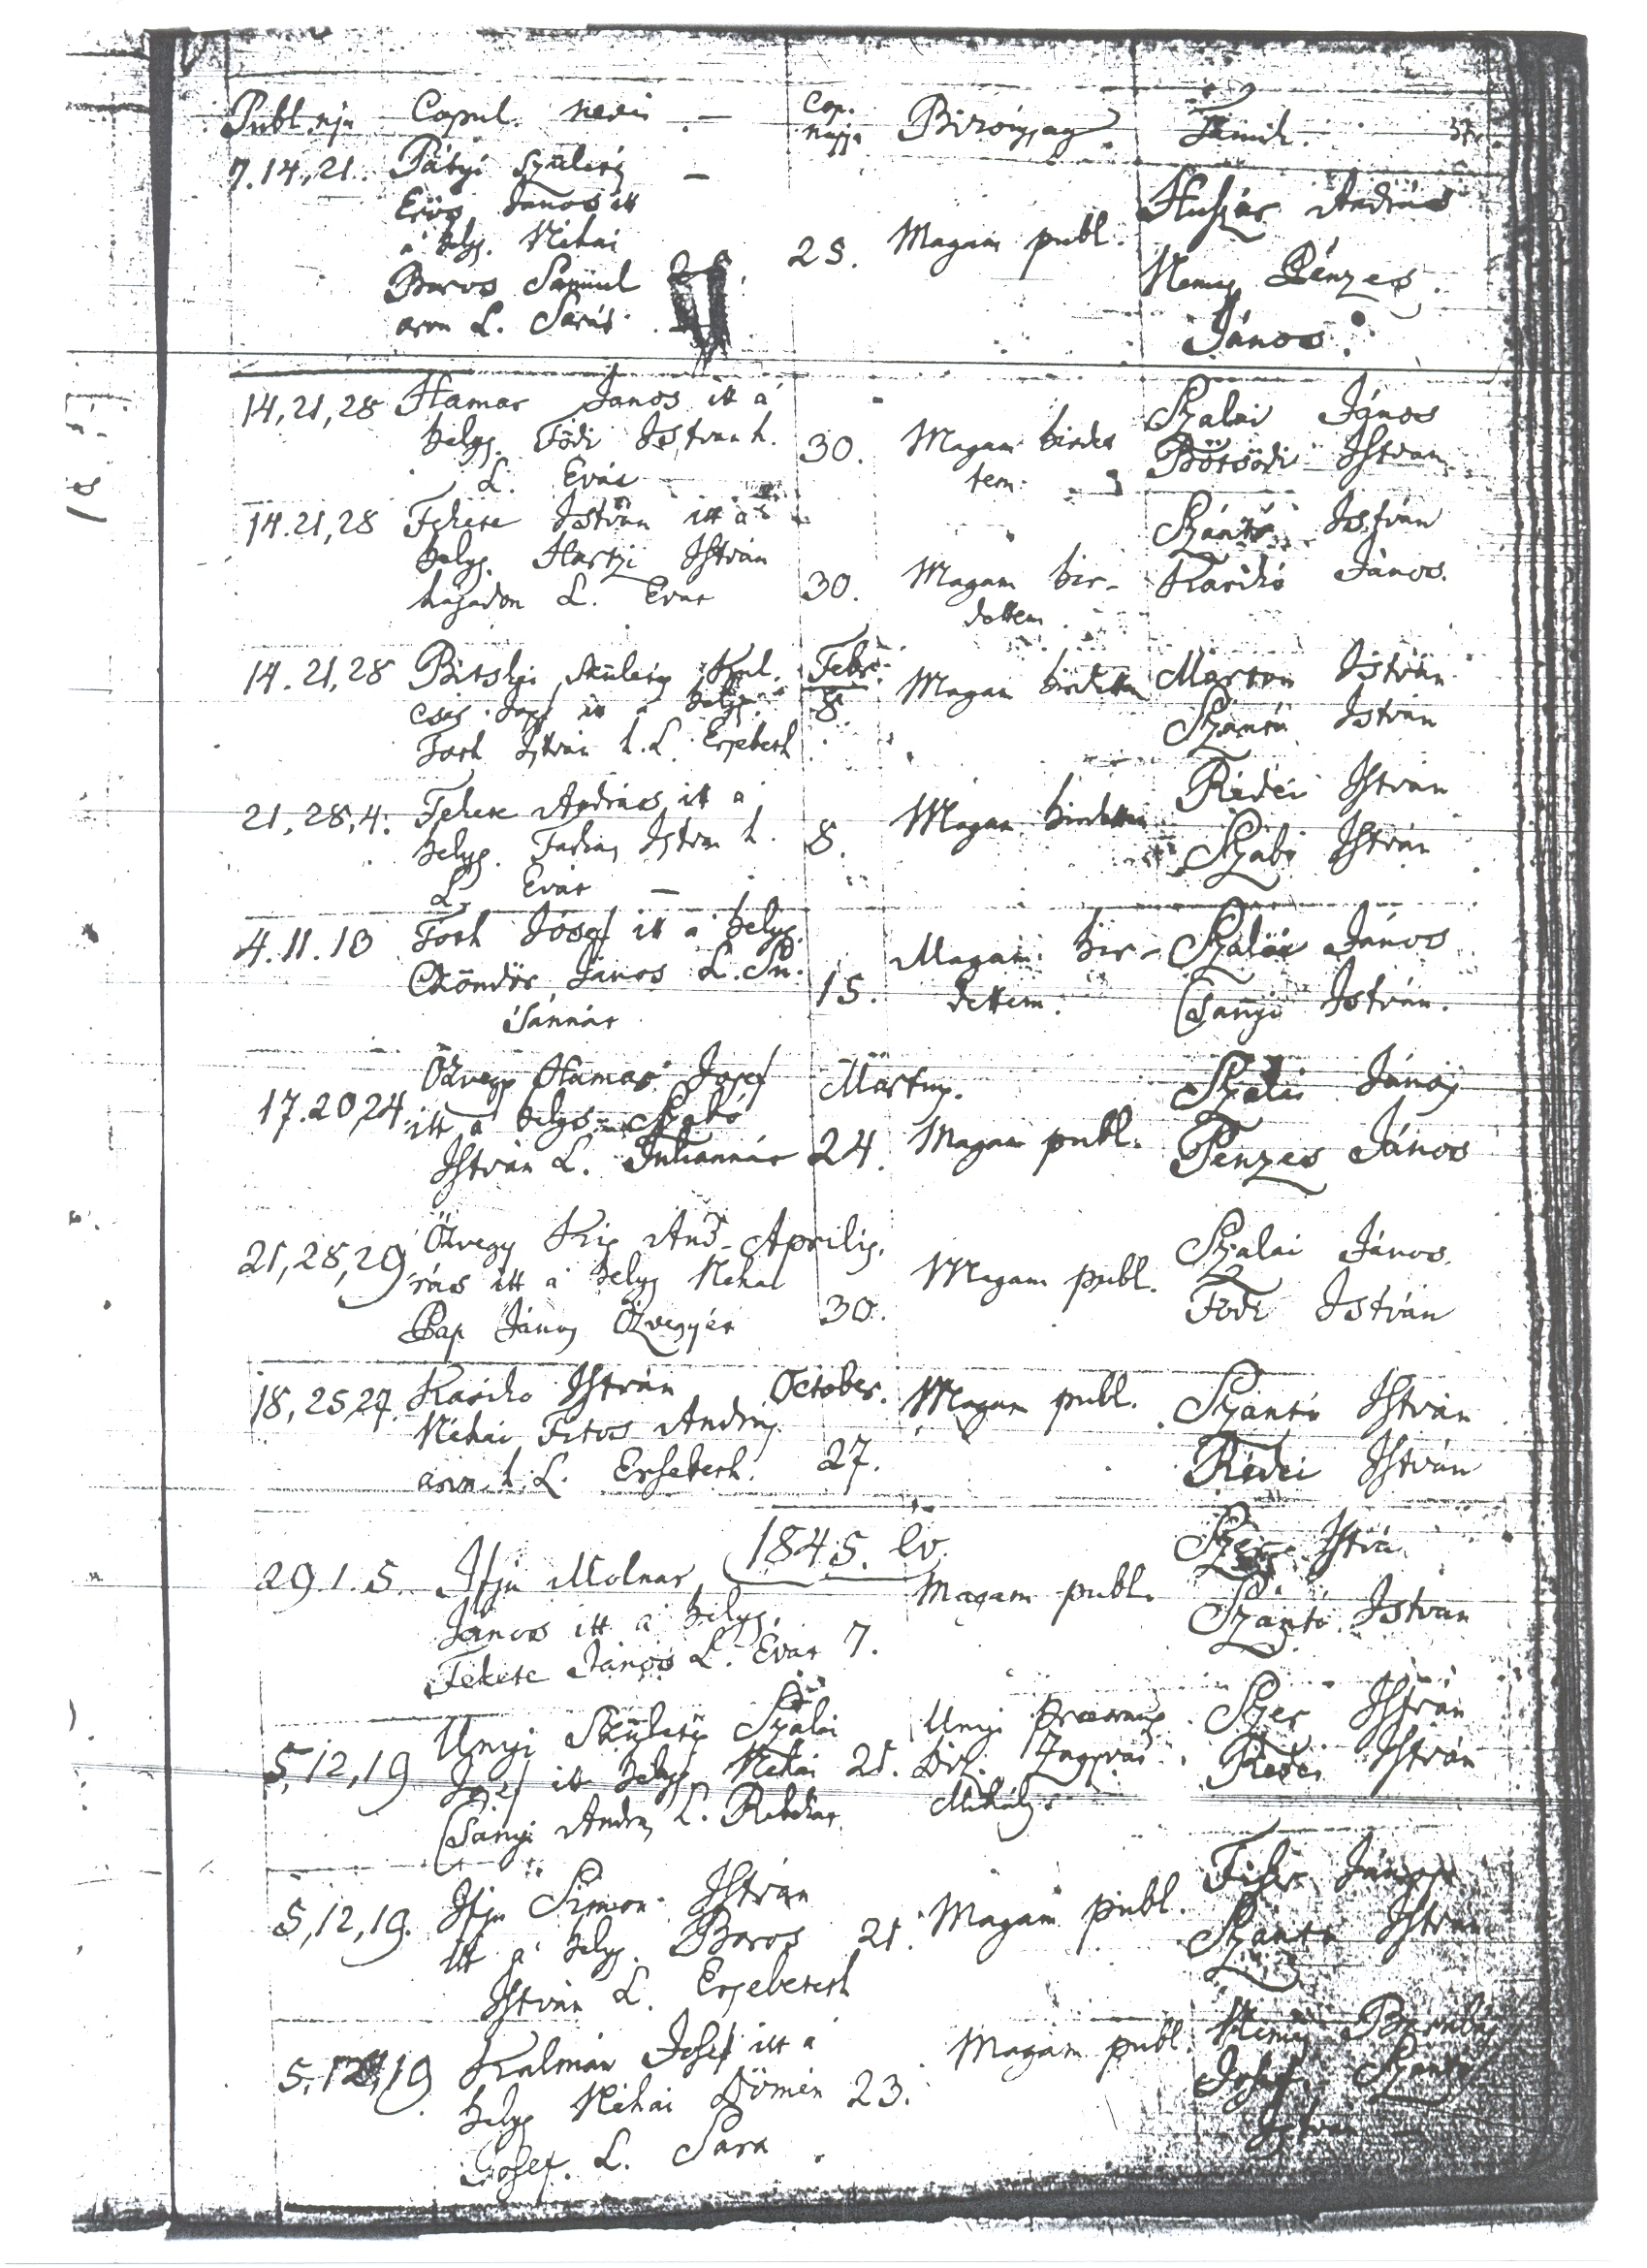 Publ. nja Copul. nevei Cop. napja Bizonyság Tanuk.
7.14,21. Pátyi születés
Erős János itt
a' helys. Néhai
Boros Sámuel
árva L. Sárás.
25. Magam publ.
Huszár András
Nemes Pénzes
János.
14,21,28 Hamar János itt a
helys. Födi István h.
L. Évás
30. Magam hirdet
tem.
Szalai János
Bötsödi István
14.21,28 Fekete István itt a
helys. Hartzi István
hajadon L. Évat
30. Magam hir-
dettem.
Szántó István
Karikó János.
14.21,28 Bitskei születés
itt a helys.
Toth István h. L. Ersebeth
Febr.
8. Magam hirdettem
Marton István
Szántó István
21,28,4. Fekete András itt a
helys. István h.
L. Évat
8. Magam hirdettem
Rédei István
Szabó István
4.11.18 Toth Jósef itt a helys.
Csöndör János L. Su'
sánnát
15. Magam hir-
dettem.
Szalai János
Csanyi István.
17.20,24. Özvegy Hamar Josef
itt a helys. Szabó
István L. Juliannát
Martius.
24. Magam publ.
Szalai János
Penzes János
21,28,29 Özvegy Kis And-
rás itt a helys Néhai
Pap János Özvegyét
Aprilis.
30. Magam publ.
Szalai János.
Födi István
18,25,27. Karikó István
Néhai Fitos András
árva h. L. Ersebeth.
October.
27. Magam publ.
Szántó István
Rédei István
1845. Év.
29.1.5. Ifju Molnar
János itt a helys.
Fekete János L. Évat 7.
Magam publ.
István
Szántó István
5,12,19 Unyi Születés Szalai
Josef itt helys. Néhai 21.
Csanyi András L. Rebekat
Unyi
Mihály
Szer István
Rédei István
5,12,19. Ifju Simon István
itt a' helys. Boros 21.
István L. Ersebeteth
Magam publ.
János
Szántó István
5,12,19 Kalmán Josef itt a
helys Néhai Dömen 23.
Josef. L. Sara
Magam publ.
Nemes
Josef. Szántó
István